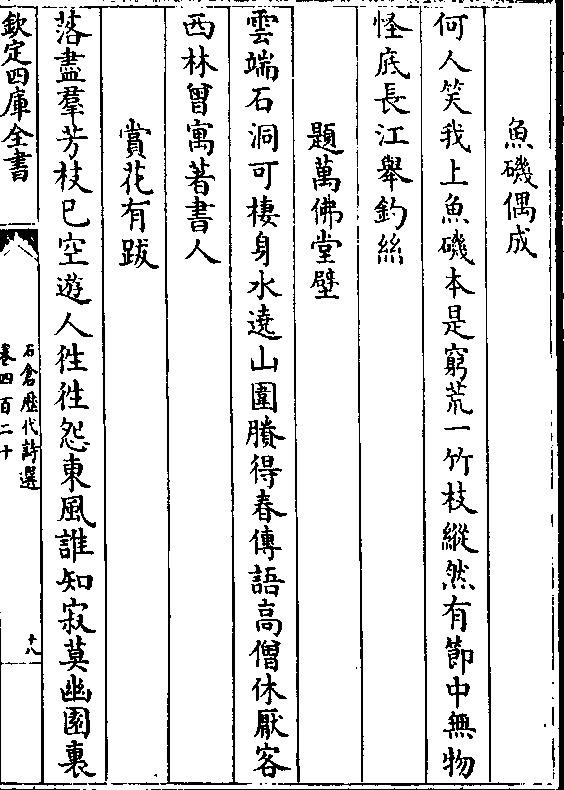 魚磯偶成
何人笑我上魚磯本是窮荒一竹枝縱然有節中無物
怪底長江舉釣絲
題萬佛堂壁
雲端石洞可棲身水遶山圍賸得春傳語高僧休厭客
西林曾寓著書人
賞花有跋
落盡羣芳枝已空遊人徃徃怨東風誰知寂莫幽園裏
欽定四庫全書
石倉歷代詩選
卷四百二十
十八